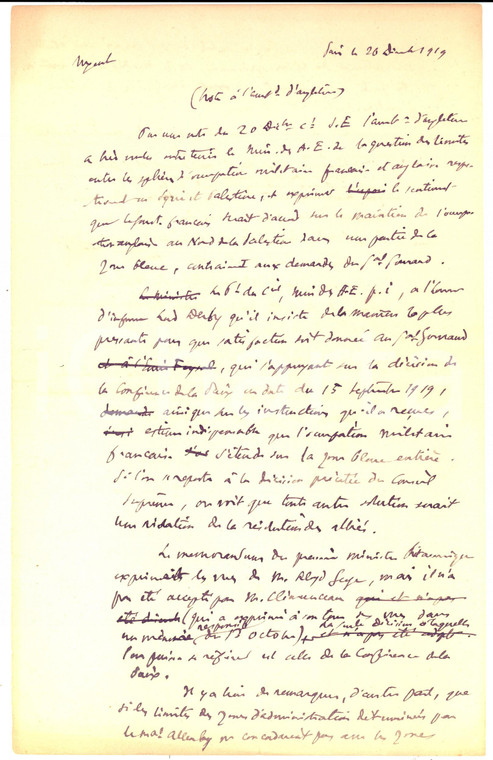 Urgent
Paris le 26 Décemb 1919
(Note à l'amb. d'Angleterre)
Par une note du 20 Décbre ct S.E. l'amb. d'Angleterre
a bien voulu entretenir le Min. des A.E. de la question des limites
entre les sphères d'occupation militaire française et anglaise respec
tivement en Syrie et Palestine, et exprimer l'espoir le sentiment
que le Gouvt français serait d'accord sur le maintien de l'occupa
tion anglaise au Nord de la Palestine dans une partie de la
Zone bleue, contrairement aux demandes du Gal Gouraud.
Le Ministre Le Pt du Cil, Min. des A.E. p.i, a l'honneur
d'informer Lord Derby qu'il insiste de la manière la plus
pressante pour que satisfaction soit donnée au Gal Gouraud
et à l'Emir Fayçal, qui s'appuyant sur la décision de
la Conférence de la Paix en date du 15 Septembre 1919,
demande ainsi que sur les instructions qu'il a reçues,
estime indispensable que l'occupation militaire
française s'étende sur la zone bleue entière.
Si l'on se reporte à la décision précitée du Conseil
Suprême, on voit que toute autre solution serait
une violation de la résolution des alliés.
Le memorandum du premier ministre britannique
exprimait les vues de M. Lloyd George, mais il n'a
pas été accepté par M. Clémenceau qui et n'a pas
été (qui a exprimé à son tour ses vues dans
un mémoire responsif du octobre) et n'a pas été adopté. La seule décision à laquelle
l'on puisse se référer est celle de la Conférence de la
Paix.
Il y a lieu de remarquer, d'autre part, que
si les limites des zones d'administration déterminées par
le mal Allenby ne concordent pas avec les zones